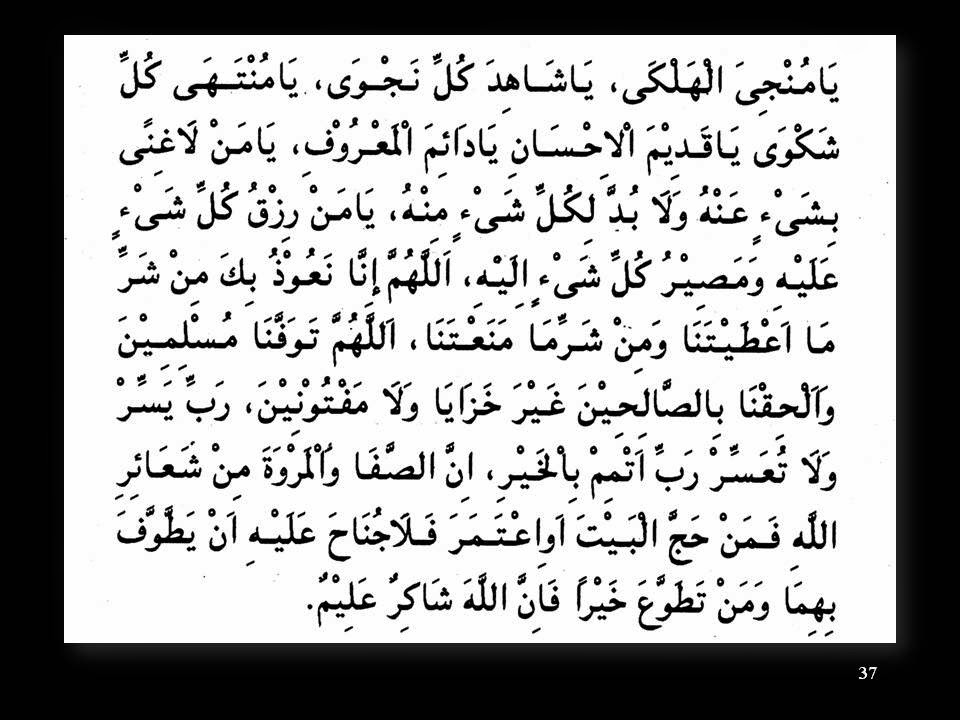 يَامُنْجِىَ الْهَلْكَى، يَاشَاهِدَ كُلِّ نَجْوَى، يَامُنْتَهَى كُلِّ
شَكْوَى يَاقَدِيْمَ الْاِحْسَانِ يَادَائِمَ الْمَعْرُوْفِ، يَامَنْ لَاغِنًى
بِشَىْءٍ عَنْهُ وَلَا بُدَّ لِكُلِّ شَىْءٍ مِنْهُ، يَامَنْ رِزْقُ كُلِّ شَىْءٍ
عَلَيْهِ وَمَصِيْرُ كُلِّ شَىْءٍ اِلَيْهِ، اَللّٰهُمَّ اِنَّا نَعُوْذُ بِكَ مِنْ شَرِّ
مَا اَعْطَيْتَنَا وَمِنْ شَرِّمَا مَنَعْتَنَا، اَللّٰهُمَّ تَوَفَّنَا مُسْلِمِيْنَ
وَاَلْحِقْنَا بِالصَّالِحِيْنَ غَيْرَ خَزَايَا وَلَا مَفْتُوْنِيْنَ، رَبِّ يَسِّرْ
وَلَا تُعَسِّرْ رَبِّ اَتْمِمْ بِالْخَيْرِ، اِنَّ الصَّفَا وَالْمَرْوَةَ مِنْ شَعَائِرِ
اللّٰهِ فَمَنْ حَجَّ الْبَيْتَ اَوِاعْتَمَرَ فَلَاجُنَاحَ عَلَيْهِ اَنْ يَطَّوَّفَ
بِهِمَا وَمَنْ تَطَوَّعَ خَيْرًا فَاِنَّ اللّٰهَ شَاكِرٌ عَلِيْمٌ.
37